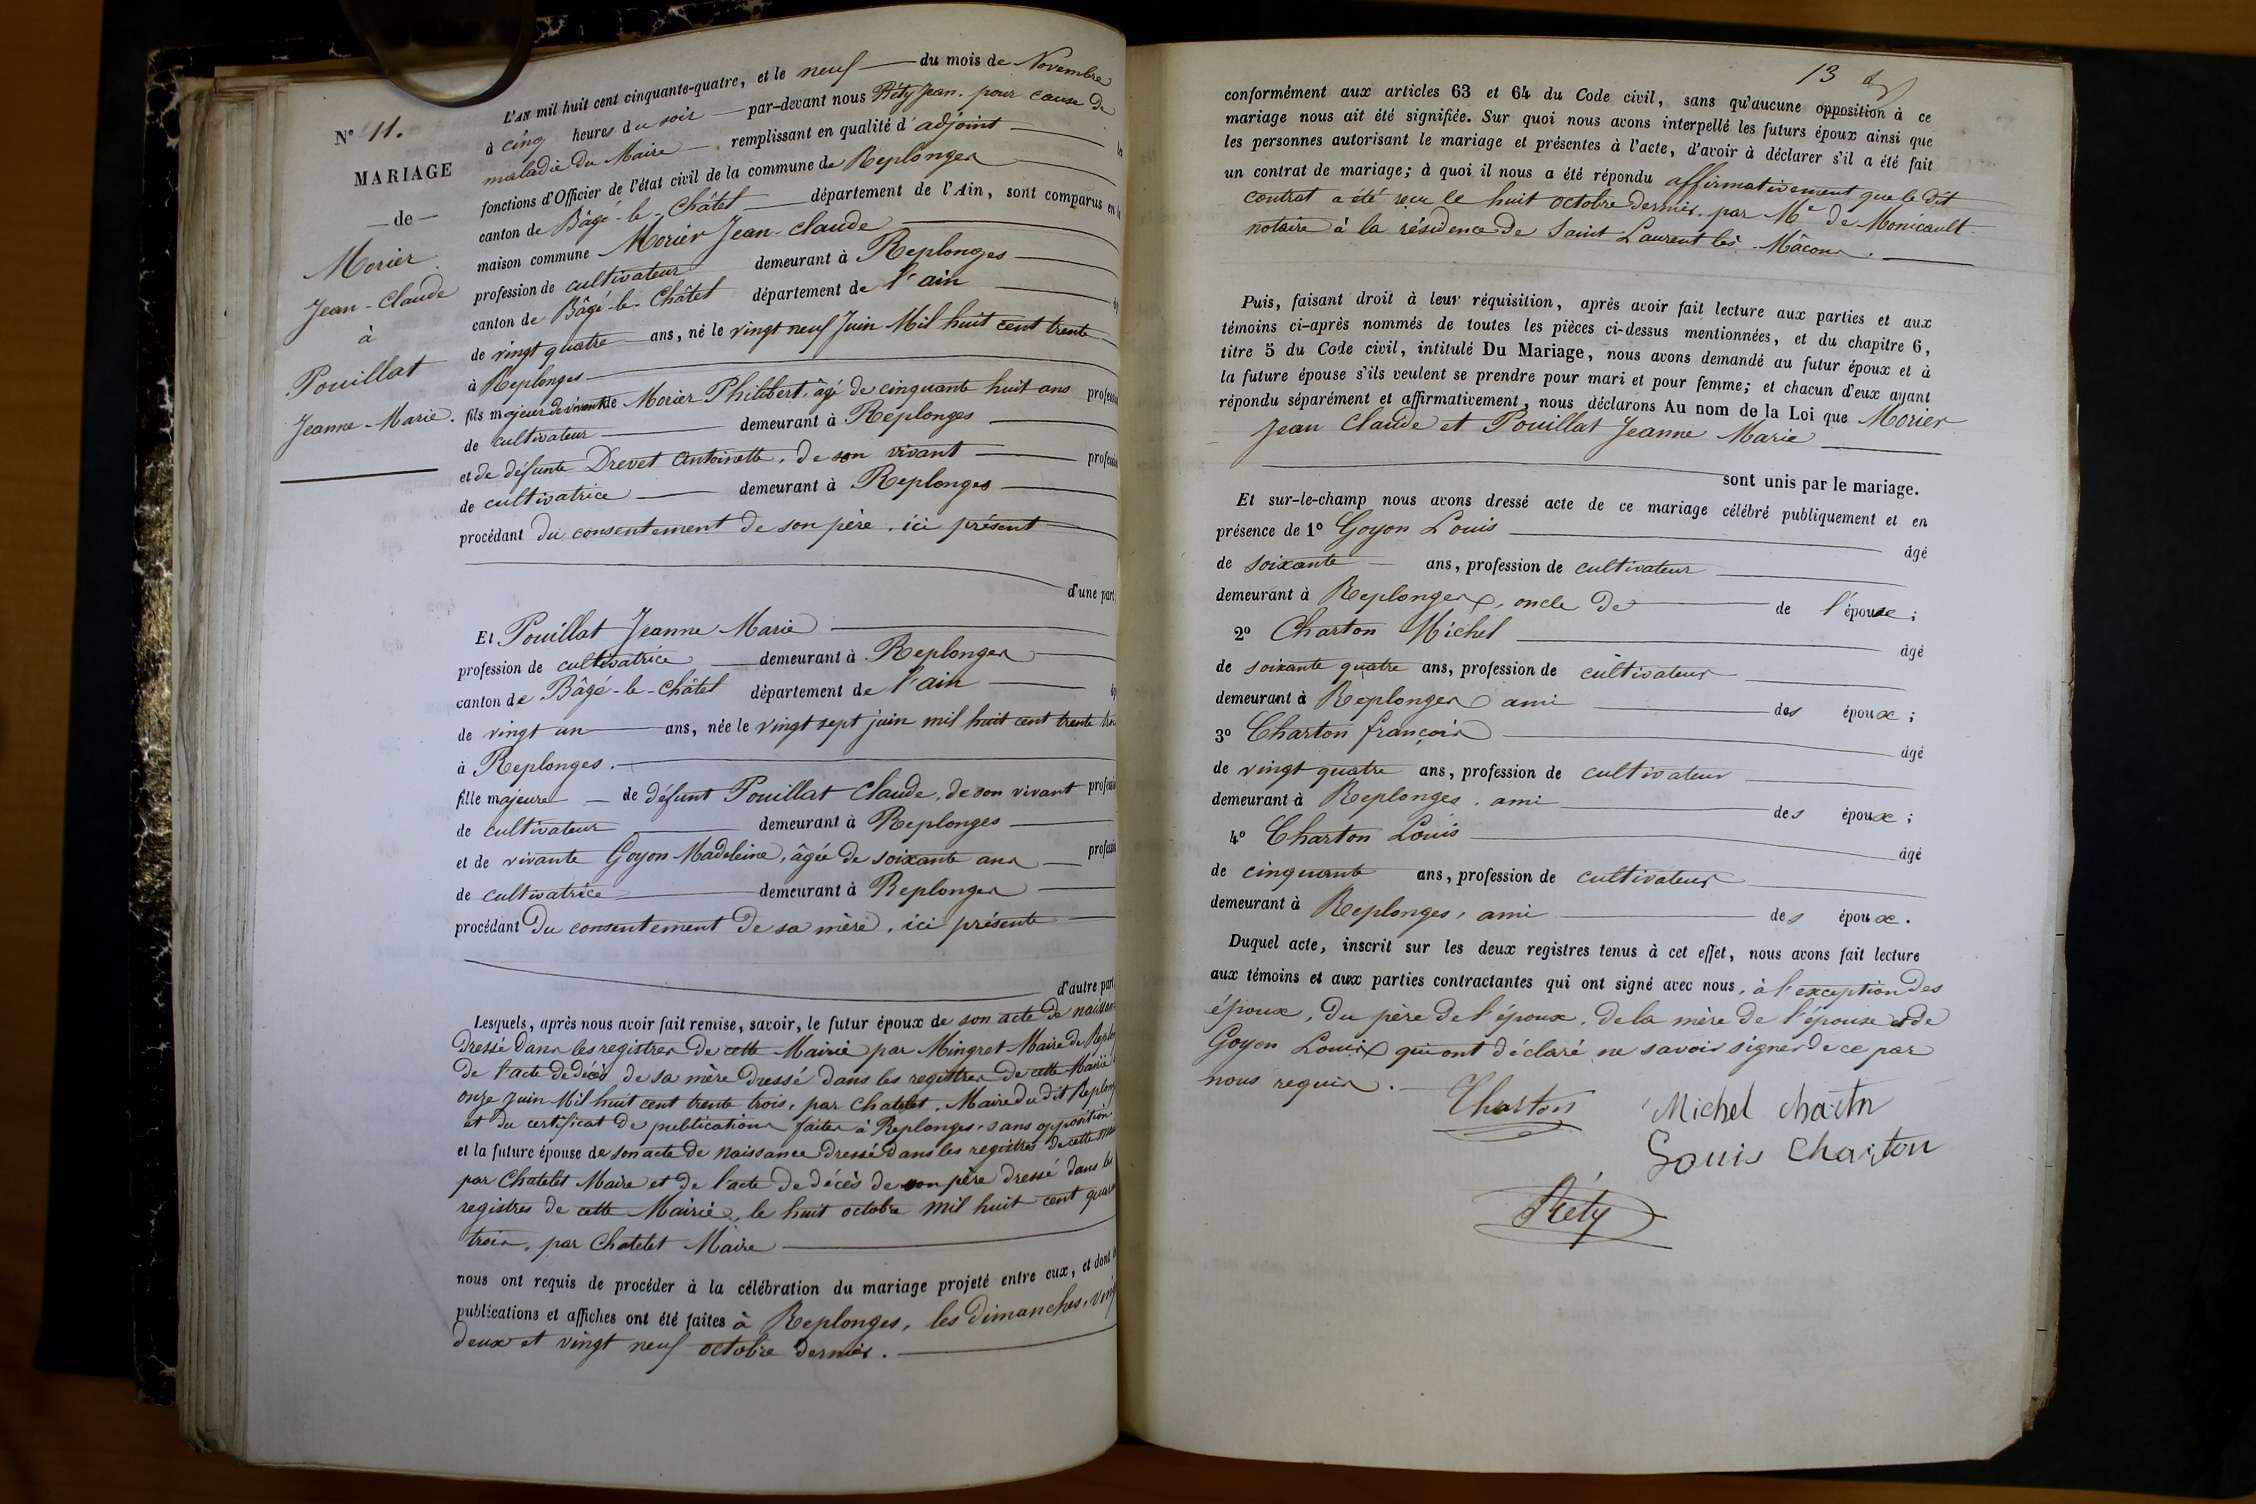 N° 11.
MARIAGE
de
Morier
Jean-Claude
à
Pouillat
Jeanne-Marie.
L'AN mil huit cent cinquante-quatre, et le neuf du mois de Novembre
à cinq heures du soir par-devant nous Réty Jean. pour cause de
maladie du Maire remplissant en qualité d'adjoint les
fonctions d'Officier de l'état civil de la commune de Replonges
canton de Bâgé-le-Châtel département de l'Ain, sont comparus en la
maison commune Morier Jean-Claude
profession de cultivateur demeurant à Replonges
canton de Bâgé-le-Châtel département de l'ain
de vingt quatre ans, né le vingt neuf Juin Mil huit cent trente
à Replonges
fils majeur de vivant de Morier Philibert, âgé de cinquante huit ans profession
de cultivateur demeurant à Replonges
et de défunte Drevet Antoinette, de son vivant profession
de cultivatrice demeurant à Replonges
procédant du consentement de son père, ici présent
d'une part
Et Pouillat Jeanne Marie
profession de cultivatrice demeurant à Replonges
canton de Bâgé-le-Châtel département de l'ain
de vingt un ans, née le vingt sept juin mil huit cent trente
à Replonges.
fille majeure de défunt Pouillat Claude, de son vivant profession
de cultivateur demeurant à Replonges
et de vivante Goyon Madeleine, âgée de soixante ans profession
de cultivatrice demeurant à Replonges
procédant du consentement de sa mère, ici présente
d'autre part
Lesquels, après nous avoir fait remise, savoir, le futur époux de son acte de naissance
dressé dans les registres de cette Mairie par Mingret Maire de Replon
de l'acte de décès de sa mère dressé dans les registres de cette Mairie
onze Juin Mil huit cent trente trois, par Chatelet, Maire du dit Replong
et du certificat de publications faites à Replonges, sans opposition
et la future épouse de son acte de naissance dressé dans les registres de cette
par Chatelet Maire et de l'acte de décès de son père dressé dans les
registres de cette Mairie, le huit octobre mil huit cent quara
trois, par Chatelet Maire
nous ont requis de procéder à la célébration du mariage projeté entre eux, et dont
publications et affiches ont été faites à Replonges, les dimanches, vingt
deux et vingt neuf octobre dernier.
13
conformément aux articles 63 et 64 du Code civil, sans qu'aucune opposition à ce
mariage nous ait été signifiée. Sur quoi nous avons interpellé les futurs époux ainsi que
les personnes autorisant le mariage et présentes à l'acte, d'avoir à déclarer s'il a été fait
un contrat de mariage; à quoi il nous a été répondu affirmativement que le dit
contrat a été reçu le huit octobre dernier. par Me de Monicault
notaire à la résidence de Saint Laurent lès Mâcon.
Puis, faisant droit à leur réquisition, après avoir fait lecture aux parties et aux
témoins ci-après nommés de toutes les pièces ci-dessus mentionnées, et du chapitre 6,
titre 5 du Code civil, intitulé Du Mariage, nous avons demandé au futur époux et à
la future épouse s'ils veulent se prendre pour mari et pour femme; et chacun d'eux ayant
répondu séparément et affirmativement, nous déclarons Au nom de la Loi que Morier
Jean Claude et Pouillat Jeanne Marie
sont unis par le mariage.
Et sur-le-champ nous avons dressé acte de ce mariage célébré publiquement et en
présence de 1° Goyon Louis âgé
de soixante ans, profession de cultivateur
demeurant à Replonges, oncle de de l'épouse;
2° Charton Michel âgé
de soixante quatre ans, profession de cultivateur
demeurant à Replonges ami des époux;
3° Charton françois âgé
de vingt quatre ans, profession de cultivateur
demeurant à Replonges. ami des époux;
4° Charton Louis âgé
de cinquante ans, profession de cultivateur
demeurant à Replonges, ami des époux.
Duquel acte, inscrit sur les deux registres tenus à cet effet, nous avons fait lecture
aux témoins et aux parties contractantes qui ont signé avec nous, à l'exception des
époux, du père de l'époux, de la mère de l'épouse et de
Goyon Louis qui ont déclaré ne savoir signer de ce par
nous requis.
Charton
Michel charton
Louis Charton
Réty